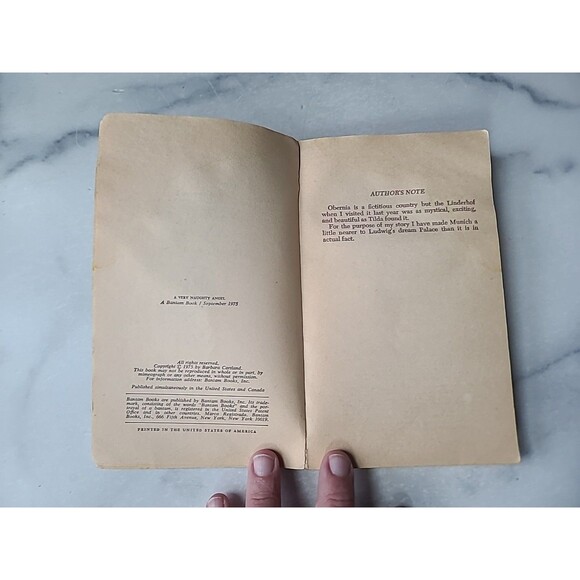 A VERY NAUGHTY ANGEL
A Bantam Book / September 1975
All rights reserved.
Copyright © 1975 by Barbara Cartland.
This book may not be reproduced in whole or in part, by
mimeograph or any other means, without permission.
For information address: Bantam Books, Inc.
Published simultaneously in the United States and Canada
Bantam Books are published by Bantam Books, Inc. Its trade-
mark, consisting of the words "Bantam Books" and the por-
trayal of a bantam, is registered in the United States Patent
Office and in other countries. Marca Registrada. Bantam
Books, Inc., 666 Fifth Avenue, New York, New York 10019.
PRINTED IN THE UNITED STATES OF AMERICA
AUTHOR'S NOTE
Obernia is a fictitious country but the Linderhof
when I visited it last year was as mystical, exciting,
and beautiful as Tilda found it.
For the purpose of my story I have made Munich a
little nearer to Ludwig's dream Palace than it is in
actual fact.